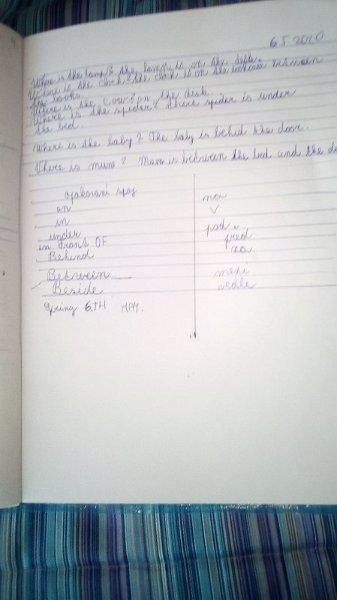 6.5.2020
Where is the lamp? the lamp is on the
Where is the clock? the clock is on the between
the books.
Where is the on the desk.
Where is the spider? there spider is under
the bed.
Where is the baby? The baby is behid the door.
There is mum? Mum is between the bed and the do
opakovani
on
in
under
in front OF
Behind
Between
Beside
na
v
pod
před
za
mezi
vedle
Spring 6.TH MAY.